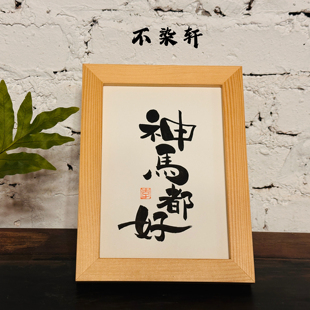 不染轩
神馬都好